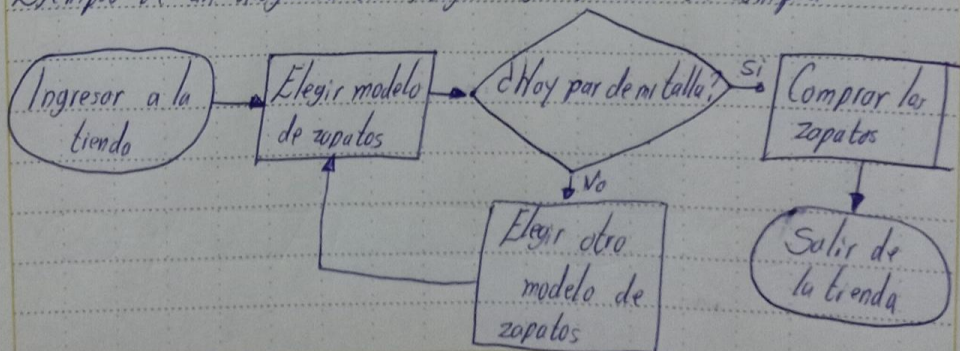 Ingresar a la
tienda
Elegir modelo
de zapatos
¿Hay par de mi talla?
Sí
Comprar los
zapatos
No
Elegir otro
modelo de
zapatos
Salir de
la tienda